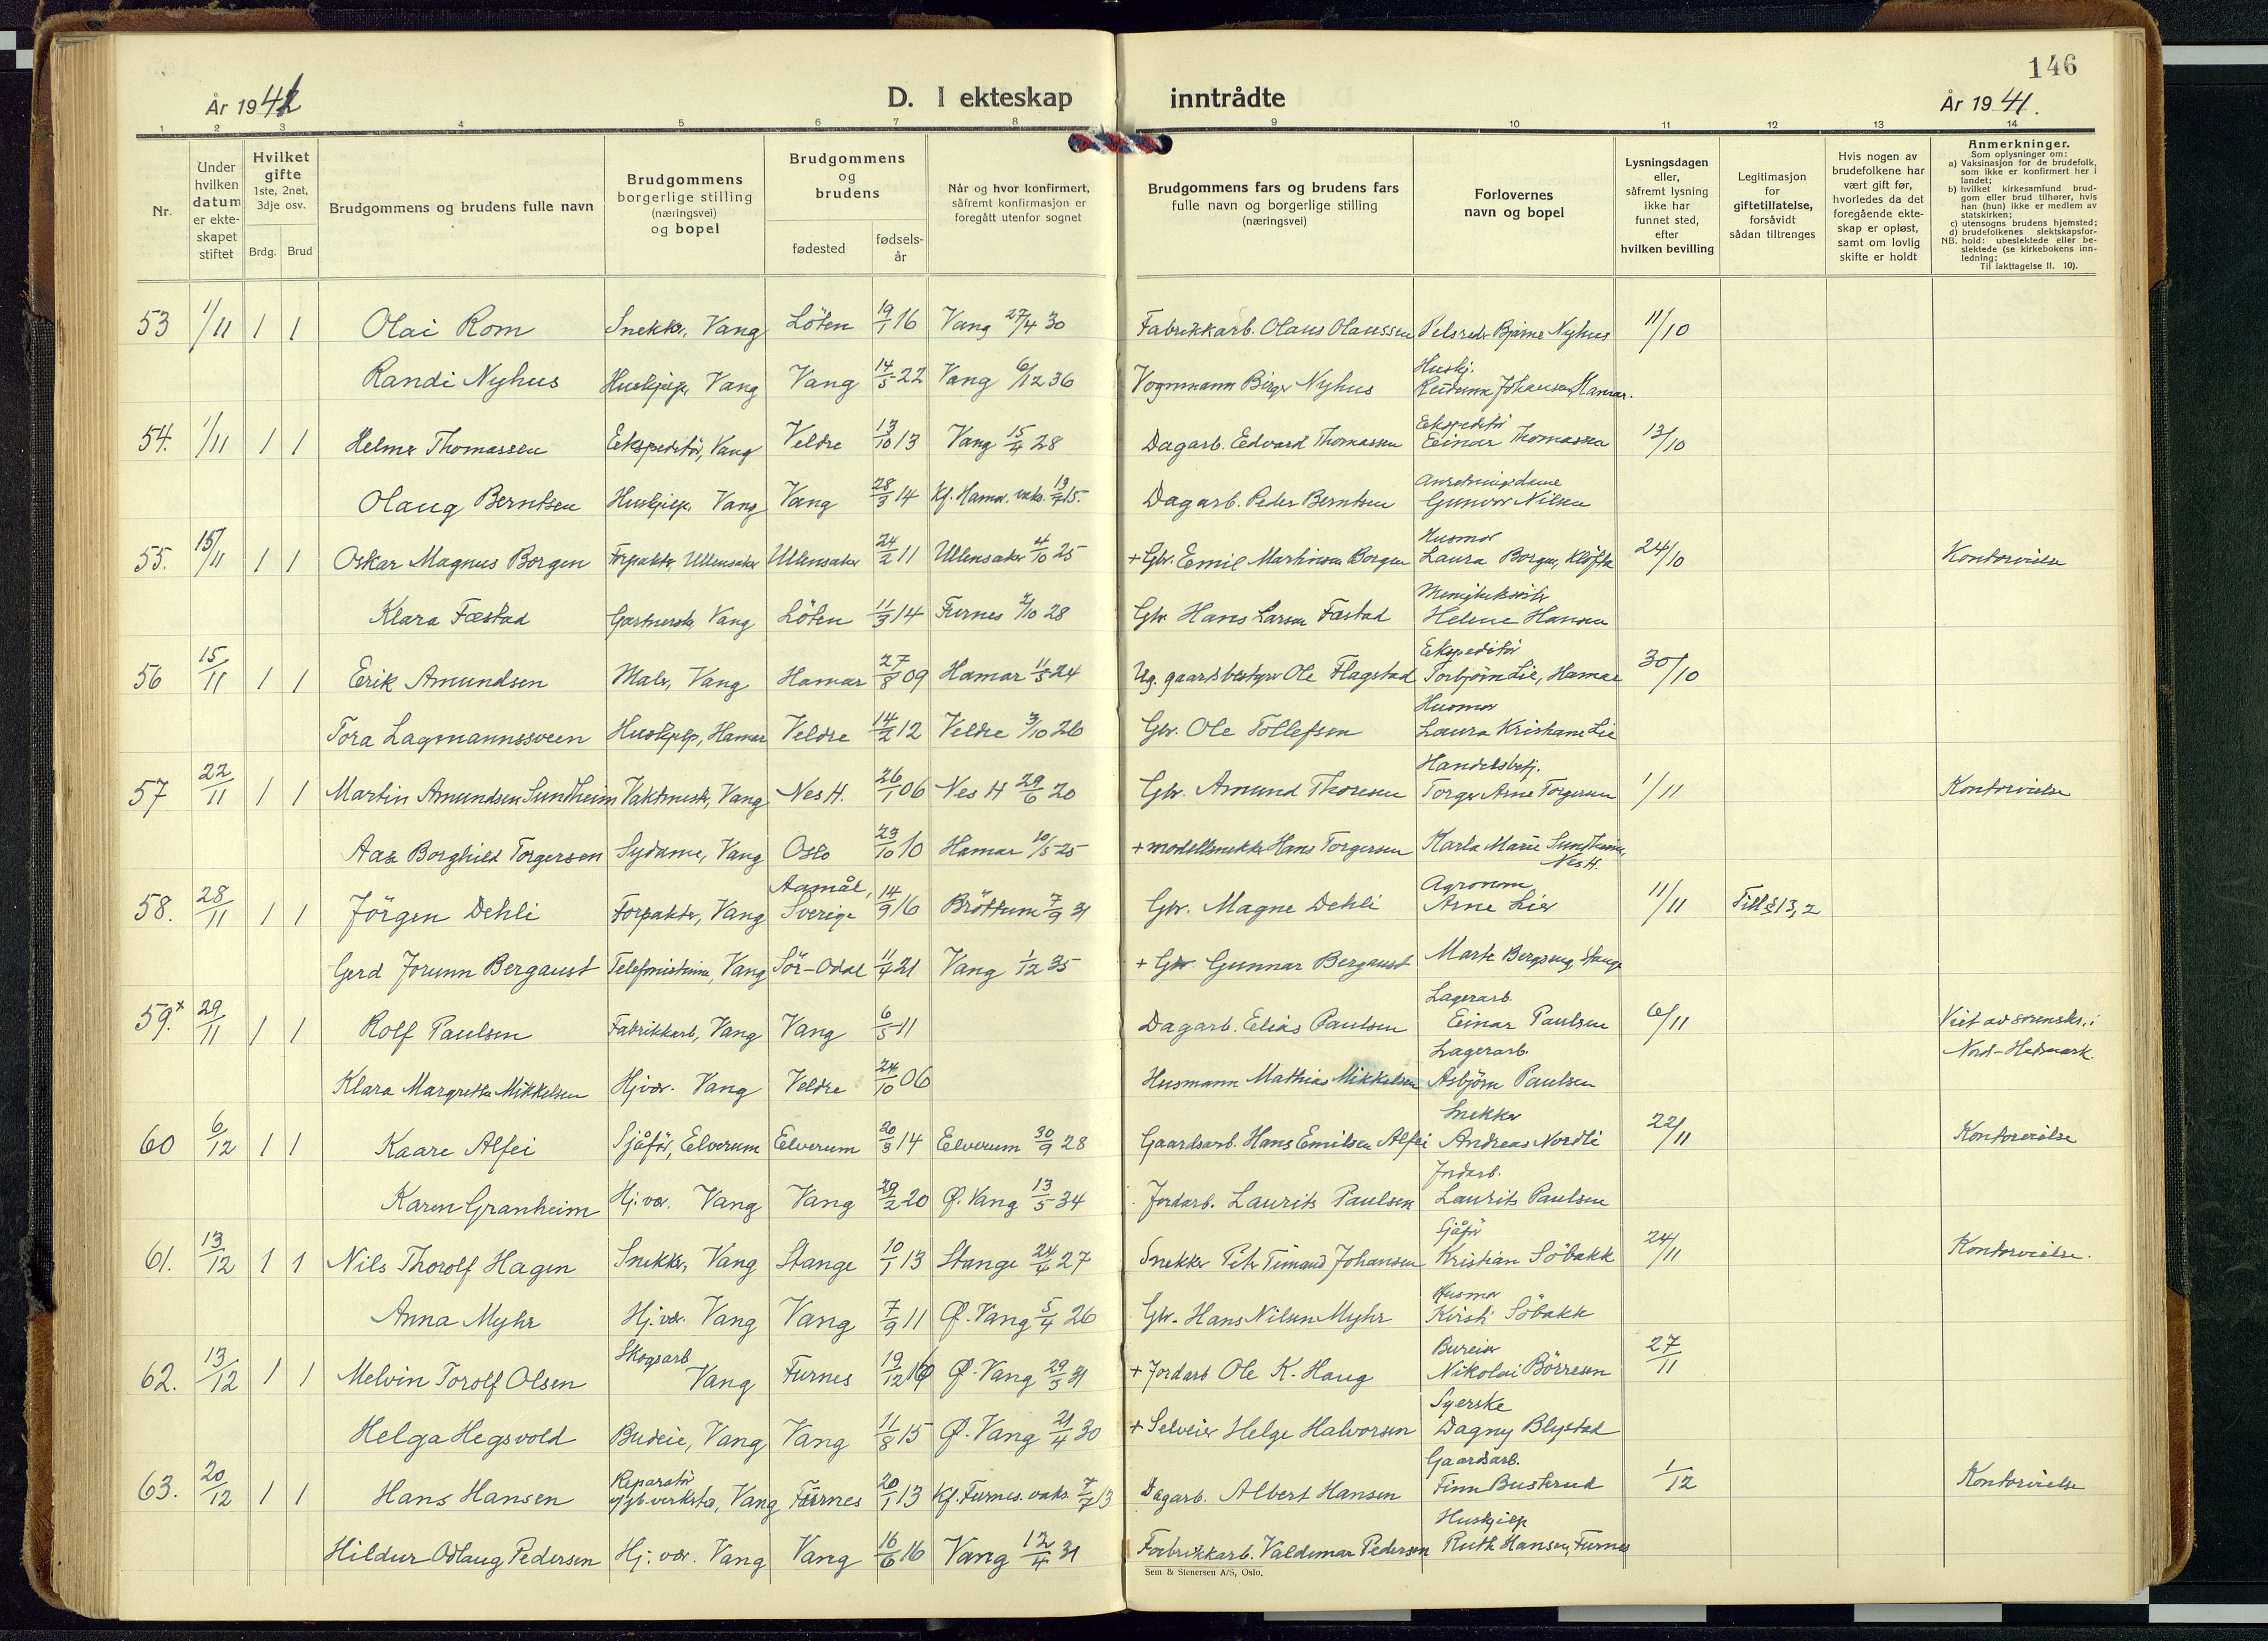 146
År 1941
D. I ekteskap inntrådte
År 1941.
1 2 3 4 5 6 7 8 9 10 11 12 13 14
Nr.
Under hvilken datum er ekteskapet stiftet
Hvilket gifte 1ste, 2net, 3dje osv.
Brdg. Brud
Brudgommens og brudens fulle navn
Brudgommens borgerlige stilling (næringsvei) og bopel
Brudgommens og brudens
fødested
fødselsår
Når og hvor konfirmert, såfremt konfirmasjon er foregått utenfor sognet
Brudgommens fars og brudens fars fulle navn og borgerlige stilling (næringsvei)
Forlovernes navn og bopel
Lysningsdagen eller, såfremt lysning ikke har funnet sted, efter hvilken bevilling
Legitimasjon for giftetillatelse, forsåvidt sådan tiltrenges
Hvis nogen av brudefolkene har vært gift før, hvorledes da det foregående ekteskap er opløst, samt om lovlig skifte er holdt
Anmerkninger.
Som oplysninger om:
a) Vaksinasjon for de brudefolk, som ikke er konfirmert her i landet;
b) hvilket kirkesamfund brudgom eller brud tilhører, hvis han (hun) ikke er medlem av statskirken;
c) utensogns brudens hjemsted;
d) brudefolkenes slektskapsforhold: ubeslektede eller beslektede (se kirkebokens innledning;
NB. Til iakttagelse II. 10).
53 1/11 1 1 Olai Rom Snekker, Vang Löten 19/1 16 Vang 27/4 30 Fabrikkarb. Olaus Olaussen Pelsreder Bjarne Nyhus 11/10
Randi Nyhus Huskjelp, Vang Vang 14/5 22 Vang 6/12 36 Vognmann Birger Nyhus Huskj. Reidunn Johansen, Hamar.
54. 1/11 1 1 Helmer Thomassen Ekspeditör, Vang Veldre 13/10 13 Vang 15/4 28 Dagarb. Edvard Thomassen Ekspeditör Einar Thomassen 13/10
Olaug Berntsen Huskjelp, Vang Vang 28/3 14 Kf. Hamar. vaks. 19/7 15. Dagarb. Peder Berntsen Anretningsdame Gunvor Nilsen
55. 15/11 1 1 Oskar Magnus Borgen Forpakter, Ullensaker Ullensaker 24/2 11 Ullensaker 4/10 25 + Gbr. Emil Martinsen Borgen Husmor Laura Borgen, Klöfta 24/10 Kontorvielse
Klara Fæstad Gartnerske, Vang Löten 11/3 14 Furnes 2/10 28 Gbr Hans Larsen Fæstad Menighetssöster Helene Hansen
56 15/11 1 1 Erik Amundsen Maler, Vang Hamar 27/8 09 Hamar 11/5 24 Ug. gaardsbestyrer Ole Flagstad Ekspeditör Torbjörn Lie, Hamar 30/10
Tora Lagmannssveen Huskjelp, Hamar Veldre 14/2 12 Veldre 3/10 26 Gbr. Ole Tollefsen Husmor Laura Kristiane Lie
57 22/11 1 1 Martin Amundsen Sundheim Vaktmester, Vang Nes H. 26/1 06 Nes H 29/6 20 Gbr. Amund Thoresen Handelsbetj. Torger Arne Torgersen 1/11 Kontorvielse
Aase Borghild Torgersen Sydame, Vang Oslo 23/10 10 Hamar 10/5 25 + modellsnekker Hans Torgersen Karla Marie Sundheim, Nes H.
58. 28/11 1 1 Jörgen Dehli Forpakter, Vang Aamål, Sverige 14/9 16 Bröttum 7/9 31 Gbr. Magne Dehli Agronom Arne Lier 11/11 Till § 13, 2
Gerd Jorunn Bergaust Telefonistinne, Vang Sör-Odal 11/4 21 Vang 1/12 35 + Gbr Gunnar Bergaust Marte Bergseng, Stange
59.x 29/11 1 1 Rolf Paulsen Fabrikkarb, Vang Vang 6/5 11 Dagarb. Elias Paulsen Lagerarb. Einar Paulsen 6/11 Viet av sorenskr. i Nord-Hedmark.
Klara Margrethe Mikkelsen Hj.vær. Vang Veldre 24/10 06 Husmann Mathias Mikkelsen Lagerarb. Asbjörn Paulsen
60 6/12 1 1 Kaare Alfei Sjåför, Elverum Elverum 20/3 14 Elverum 30/9 28 Gaardsarb. Hans Emilsen Alfei Snekker Andreas Nordli 22/11 Kontorvielse
Karen Granheim Hj. vær. Vang Vang 29/2 20 Ø. Vang 13/5 34 Jordarb. Laurits Paulsen Jordarb. Laurits Paulsen
61. 13/12 1 1 Nils Thorolf Hagen Snekker, Vang Stange 10/1 13 Stange 24/4 27 Snekker Peter Timand Johansen Sjåför Kristian Söbakk 24/11 Kontorvielse.
Anna Myhr Hj. vær. Vang Vang 7/9 11 Ø. Vang 5/4 26 Gbr. Hans Nilsen Myhr Husmor Kirsti Söbakk
62. 13/12 1 1 Melvin Torolf Olsen Skogsarb Vang Furnes 19/12 16 Ø. Vang 29/3 31 + Jordarb Ole K. Haug Bureiser Nikolai Börresen 27/11
Helga Hegsvold Budeie, Vang Vang 11/8 15 Ø. Vang 21/4 30 + Selveier Helge Halvorsen Syerske Dagny Blystad
63. 20/12 1 1 Hans Hansen Reparatör verksted, Vang Furnes 20/1 13 Kf. Furnes. vaks. 7/7 13 Dagarb. Albert Hansen Gaardsarb. Finn Buskerud 1/12 Kontorvielse
Hildur Odlaug Pedersen Hj. vær. Vang Vang 16/6 16 Vang 12/4 31 Fabrikkarb. Valdemar Pedersen Huskjelp Ruth Hansen, Furnes
Sem & Stenersen A/S, Oslo.